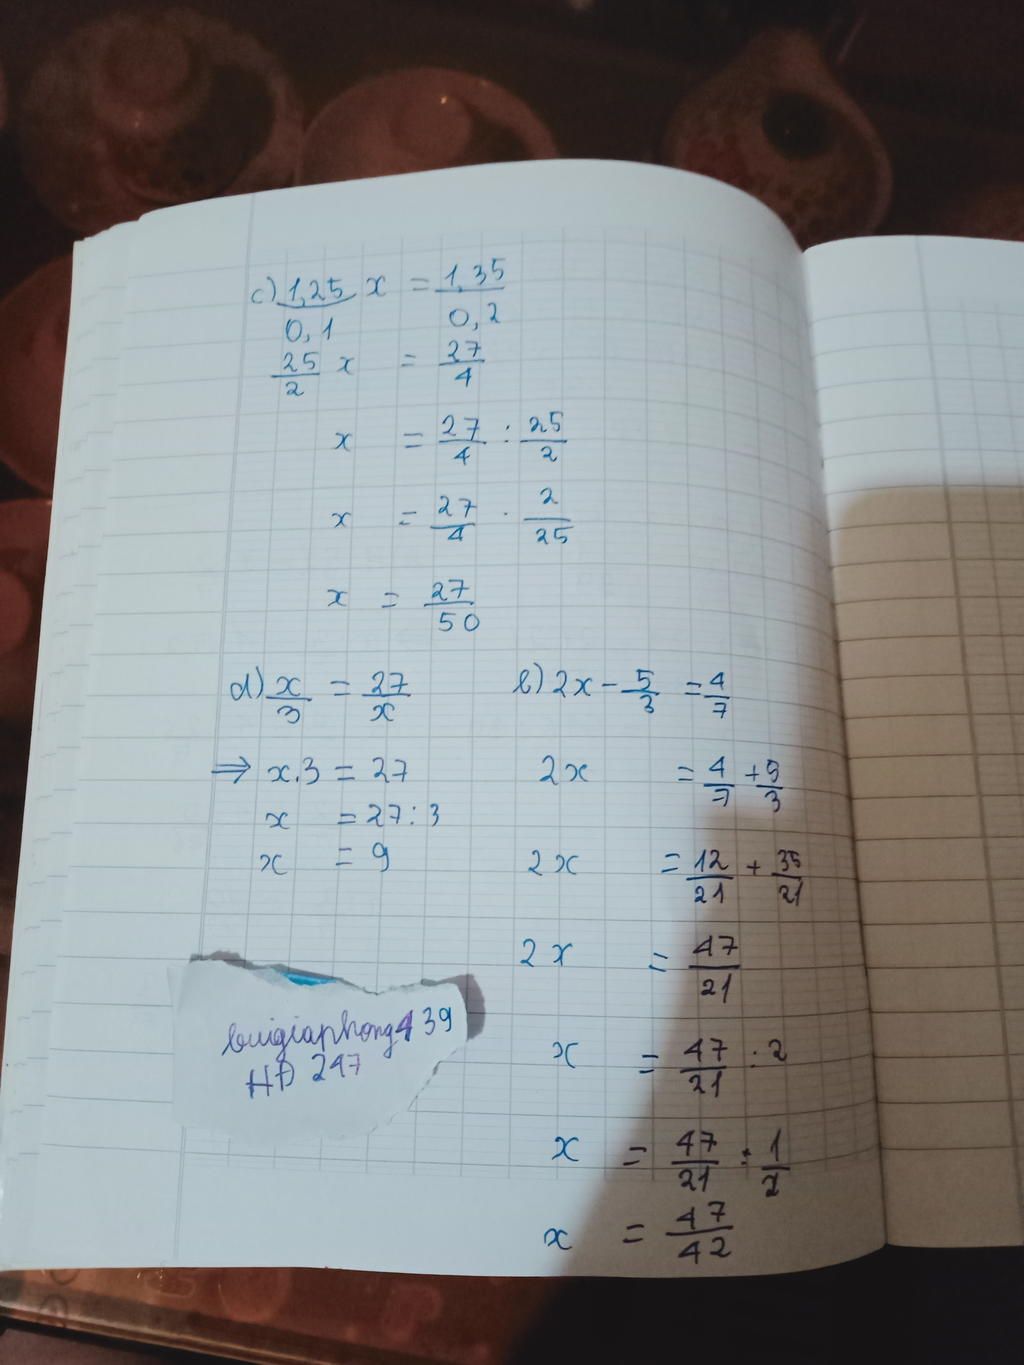 c) 1,25/0,1 x = 1,35/0,2
25/2 x = 27/4
x = 27/4 : 25/2
x = 27/4 . 2/25
x = 27/50
d) x/3 = 27/x
⇒ x.3 = 27
x = 27 : 3
x = 9
b) 2x - 5/3 = 4/7
2x = 4/7 + 5/3
2x = 12/21 + 35/21
2x = 47/21
x = 47/21 : 2
x = 47/21 : 1/2
x = 47/42
buigiaphong439
HĐ 247